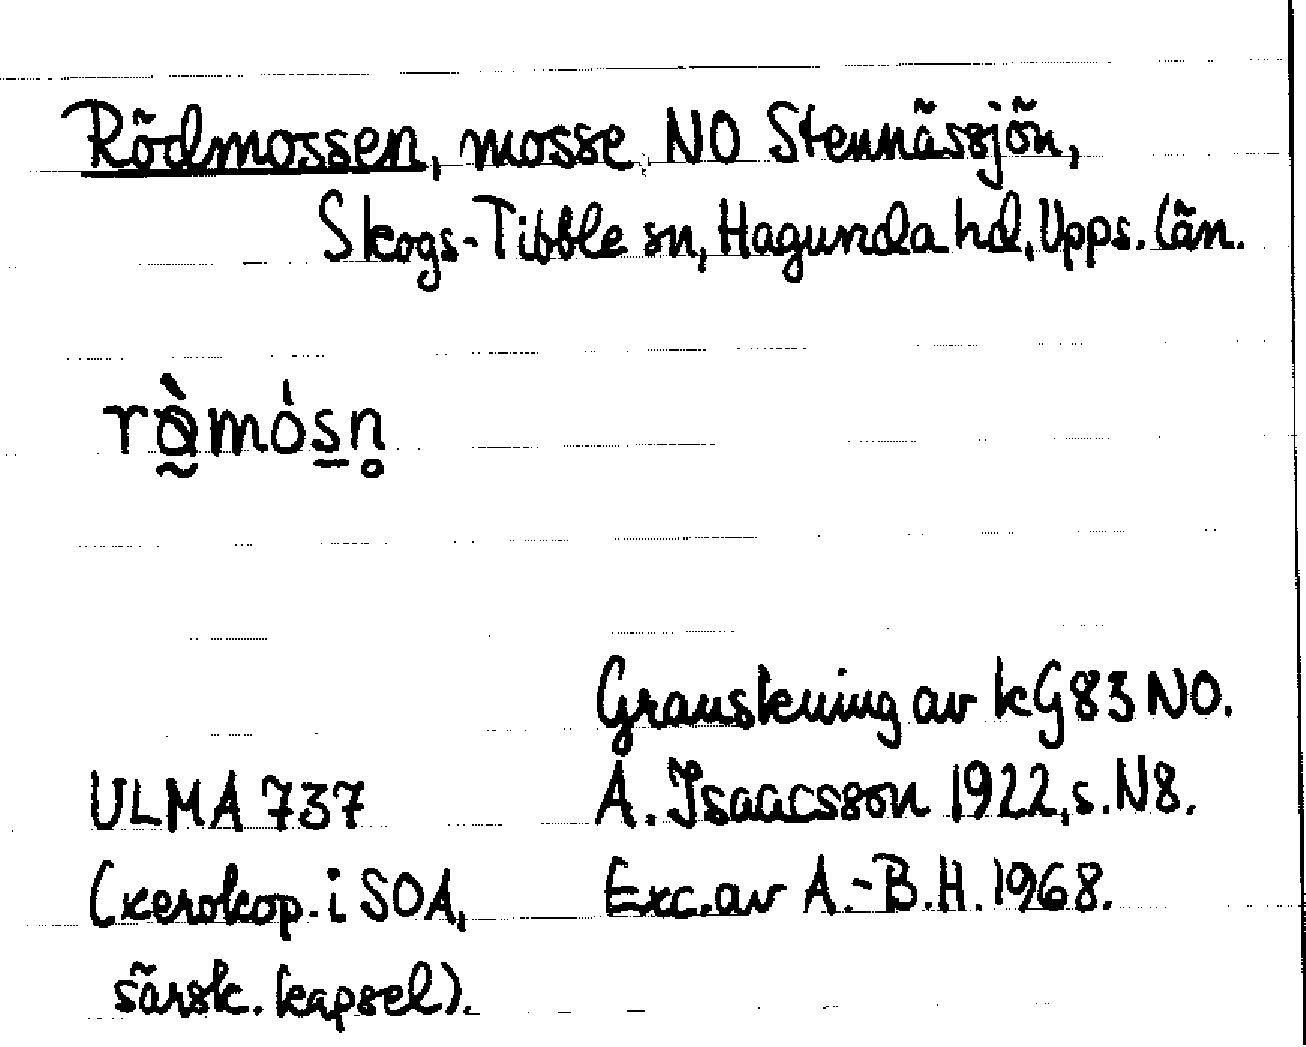 Rödmossen, mosse, NO Stennässjön,
Skogs-Tibble sn, Hagunda hd, Upps. län.
Granskning av kG83 NO.
ULMA 737 A. Isaacsson 1922, s. N8.
(xerokop. i SOA, Exc. av A.-B.H. 1968.
särsk. kapsel).